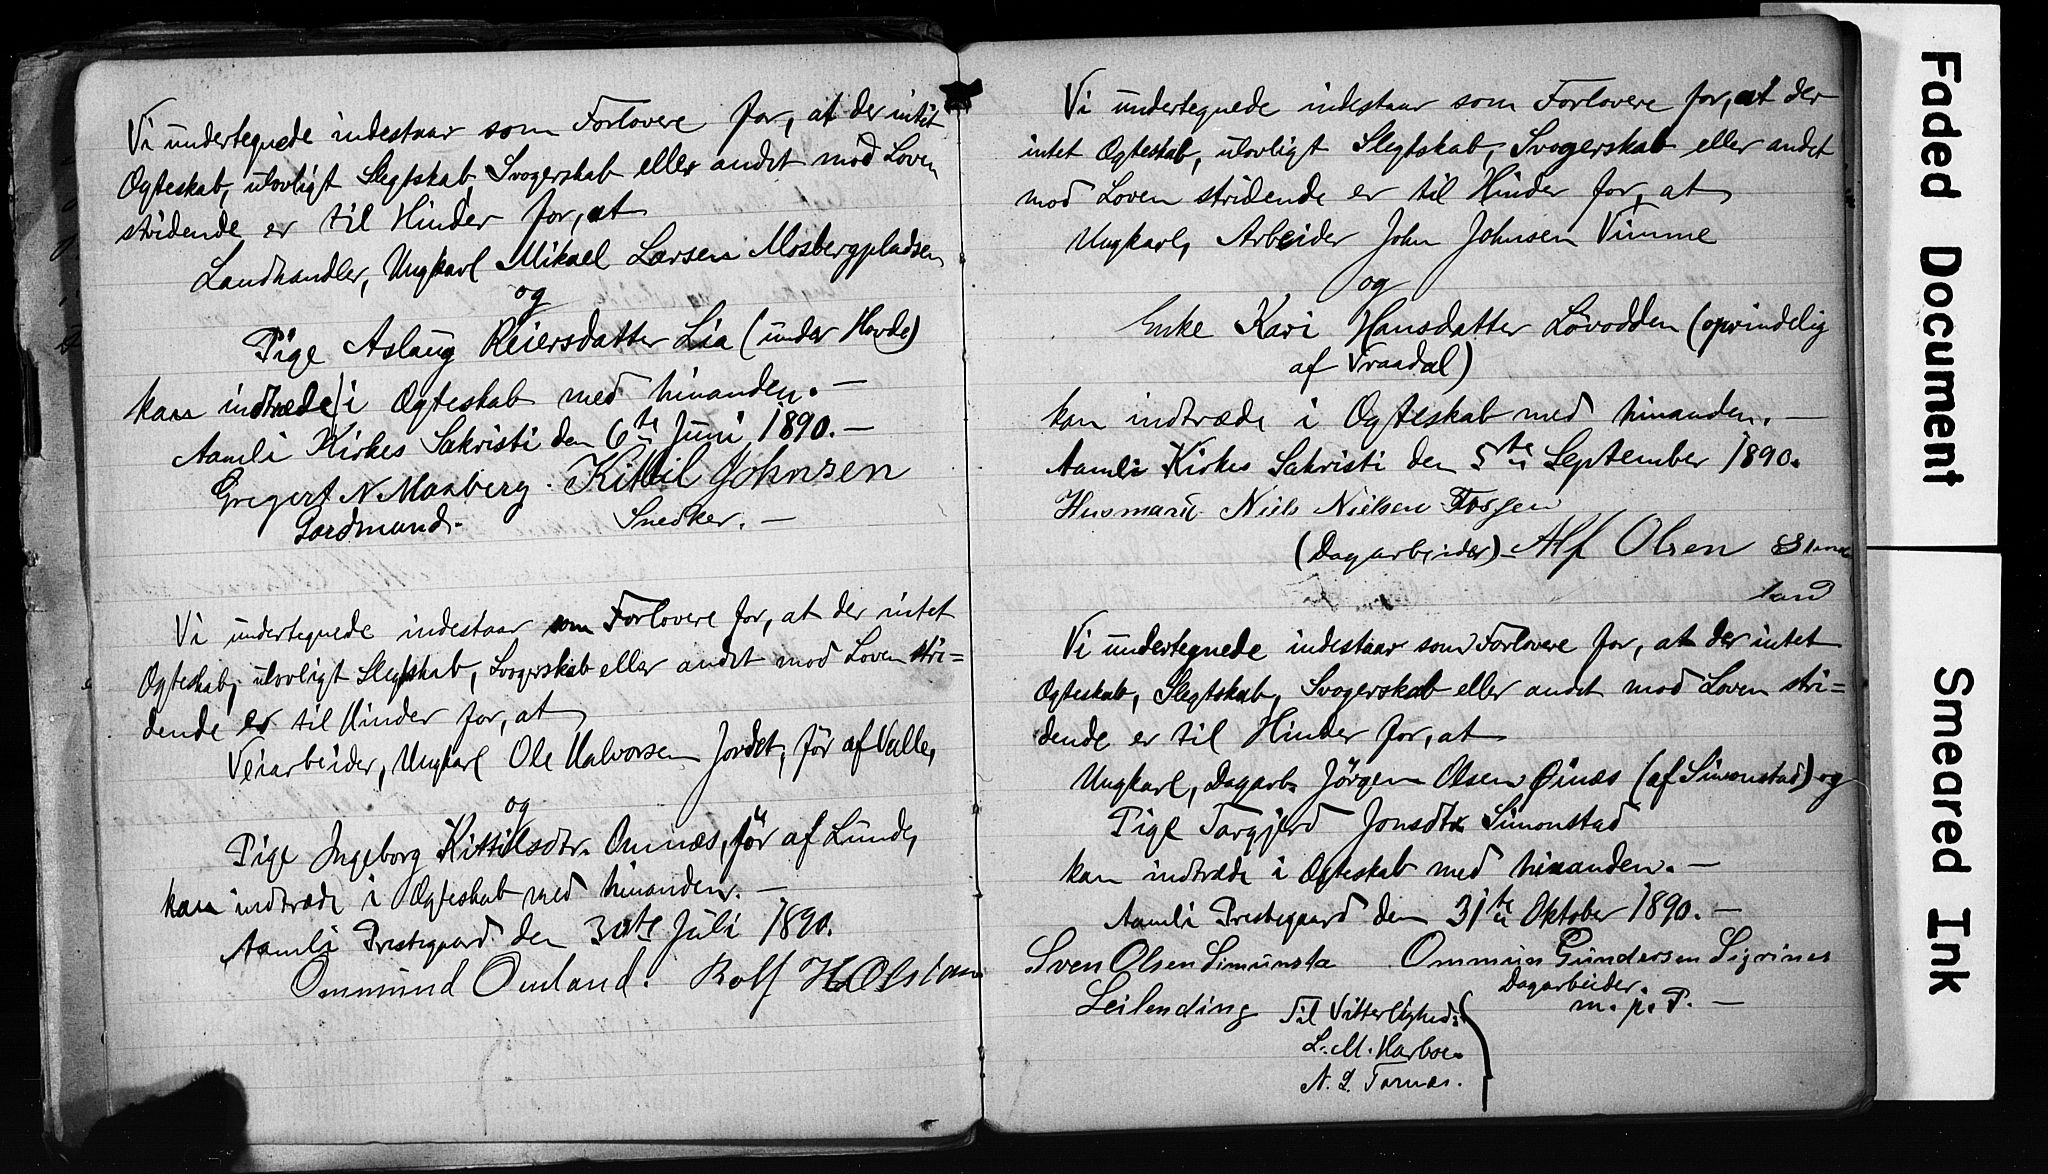 Vi undertegnede indestaar som Forlovere for, at der intet
Ogteskab, ulovligt Slegtskab, Svogerskab eller andet mod Loven
stridende er til Hinder for, at
Landhandler, Ungkarl Mikael Larsen Mosbergpladsen
og
Pige Aslaug Reiersdatter Lia (under Hovde)
kan indtræde i Ogteskab med hinanden. —
Aamli Kirkes Sakristi den 6te Juni 1890. —
Gregert N Mosberg. Kittil Johnsen
Gardmand. Snedker. —
Vi undertegnede indestaar som Forlovere for, at der intet
Ogteskab, ulovligt Slegtskab, Svogerskab eller andet mod Loven stri=
dende er til Hinder for, at
Veiarbeider, Ungkarl Ole Halvorsen Jordet, før af Valle,
og
Pige Ingeborg Kittilsdtr. Omnæs, før af Lunde,
kan indtræde i Ogteskab med hinanden. —
Aamli Prestegaard den 30te Juli 1890.
Ommund Omland. Rolf H
Vi undertegnede indestaar som Forlovere for, at der
intet Ogteskab, ulovligt Slegtskab, Svogerskab eller andet
mod Loven stridende er til Hinder for, at
Ungkarl, Arbeider John Johnsen Vimme
og
Enke Kari Hansdatter Løvodden (oprindelig
af Vraadal)
kan indtræde i Ogteskab med hinanden. —
Aamli Kirkes Sakristi den 5te September 1890.
Husmand Niels Nielsen
(Dagarbeider) Alf Olsen
land
Vi undertegnede indestaar som Forlovere for, at der intet
Ogteskab, Slegtskab, Svogerskab eller andet mod Loven stri=
dende er til Hinder for, at
Ungkarl, Dagarb. Jørgen Olsen Øinæs (af Simonstad) og
Pige Torgjerd Jonsdtr Simonstad
kan indtræde i Ogteskab med hinanden. —
Aamli Prestegaard den 31te Oktober 1890. —
Sven Olsen Simunsta Ommun Gundersen Sigrines
Dagarbeider.
Leilending m. p. P. —
Til Vitterlighed:
L. M. Harboe
N. L. Tornæs.
Faded Document
Smeared Ink